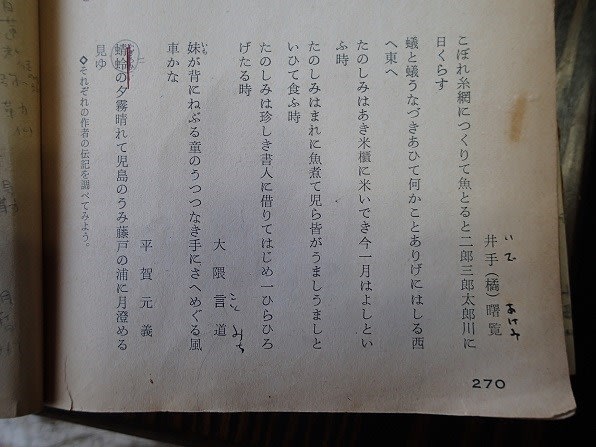 井手(橘)曙覧
いで
あけみ
こぼれ糸網につくりて魚とると二郎三郎太郎川に
日くらす
蟻と蟻うなづきあひて何かことありげにはしる西
へ東へ
たのしみはあき米櫃に米いでき今一月はよしとい
ふ時
たのしみはまれに魚煮て児ら皆がうましうましと
いひて食ふ時
たのしみは珍しき書人に借りてはじめ一ひらひろ
げたる時
大隈言道
ことみち
妹が背にねぶる童のうつつなき手にさへめぐる風
いも
車かな
平賀元義
蜻蛉の夕霧晴れて児島のうみ藤戸の浦に月澄める
見ゆ
◇それぞれの作者の伝記を調べてみよう。
270